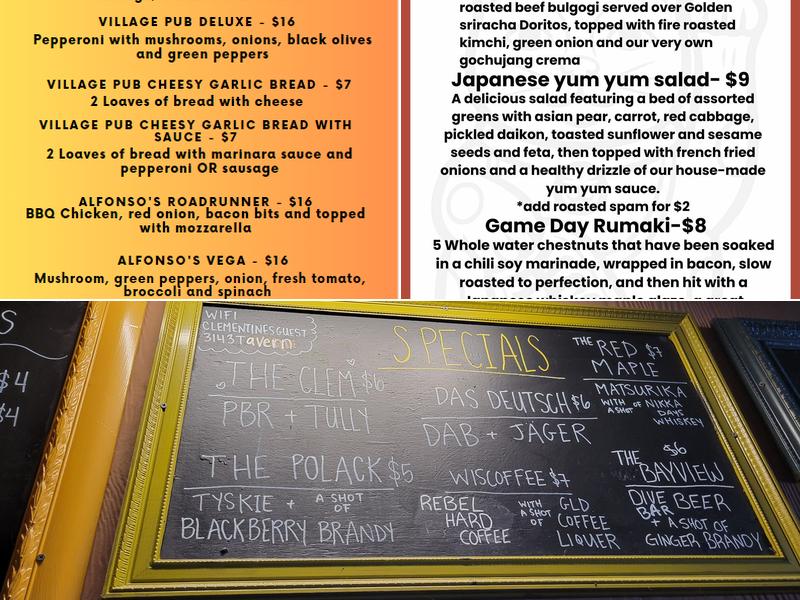 VILLAGE PUB DELUXE - $16
Pepperoni with mushrooms, onions, black olives
and green peppers
VILLAGE PUB CHEESY GARLIC BREAD - $7
2 Loaves of bread with cheese
VILLAGE PUB CHEESY GARLIC BREAD WITH
SAUCE - $7
2 Loaves of bread with marinara sauce and
pepperoni OR sausage
ALFONSO'S ROADRUNNER - $16
BBQ Chicken, red onion, bacon bits and topped
with mozzarella
ALFONSO'S VEGA - $16
Mushroom, green peppers, onion, fresh tomato,
broccoli and spinach
roasted beef bulgogi served over Golden
sriracha Doritos, topped with fire roasted
kimchi, green onion and our very own
gochujang crema
Japanese yum yum salad- $9
A delicious salad featuring a bed of assorted
greens with asian pear, carrot, red cabbage,
pickled daikon, toasted sunflower and sesame
seeds and feta, then topped with french fried
onions and a healthy drizzle of our house-made
yum yum sauce.
*add roasted spam for $2
Game Day Rumaki-$8
5 Whole water chestnuts that have been soaked
in a chili soy marinade, wrapped in bacon, slow
roasted to perfection, and then hit with a
Japanese whiskey maple glaze, a great
S
$4
$4
WIFI
CLEMENTINESGUEST
3143Tavern
SPECIALS
THE CLEM $6
PBR + TULLY
THE POLACK $5
TYSKIE + A SHOT OF
BLACKBERRY BRANDY
DAS DEUTSCH $6
DAB + JAGER
WISCOFFEE $7
REBEL HARD COFFEE
WITH A SHOT OF
GLD COFFEE LIQUER
THE RED $7
MAPLE
MATSURIKA
WITH A SHOT OF NIKKA
DAYS
WHISKEY
$6
THE BAYVIEW
DIVE BEER
BAR
+ A SHOT OF
GINGER BRANDY